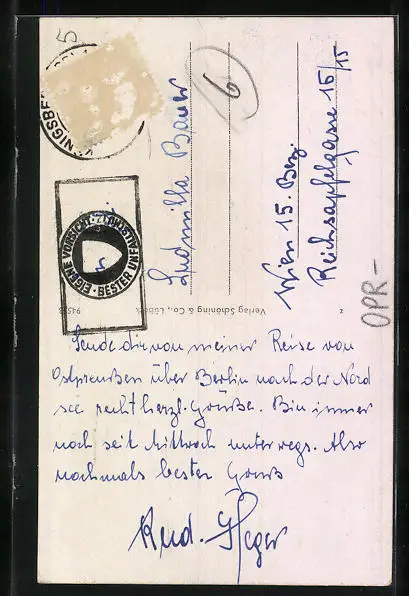 KÖNIGSBE
EIGENE VORSICHT
BESTER UNFALLSCHUTZ
5
6
Ludmilla Bauer
Wien 15. Bez.
Reichsapfelgasse 16/15
OPR-
Verlag Schöning & Co., Lübeck
Sende dir von meiner Reise von
Ostpreußen über Berlin nach der Nord
see recht herzl. Grüße. Bin immer
noch seit Mittwoch unterwegs. Also
nochmals besten Gruß
Rud. Heger